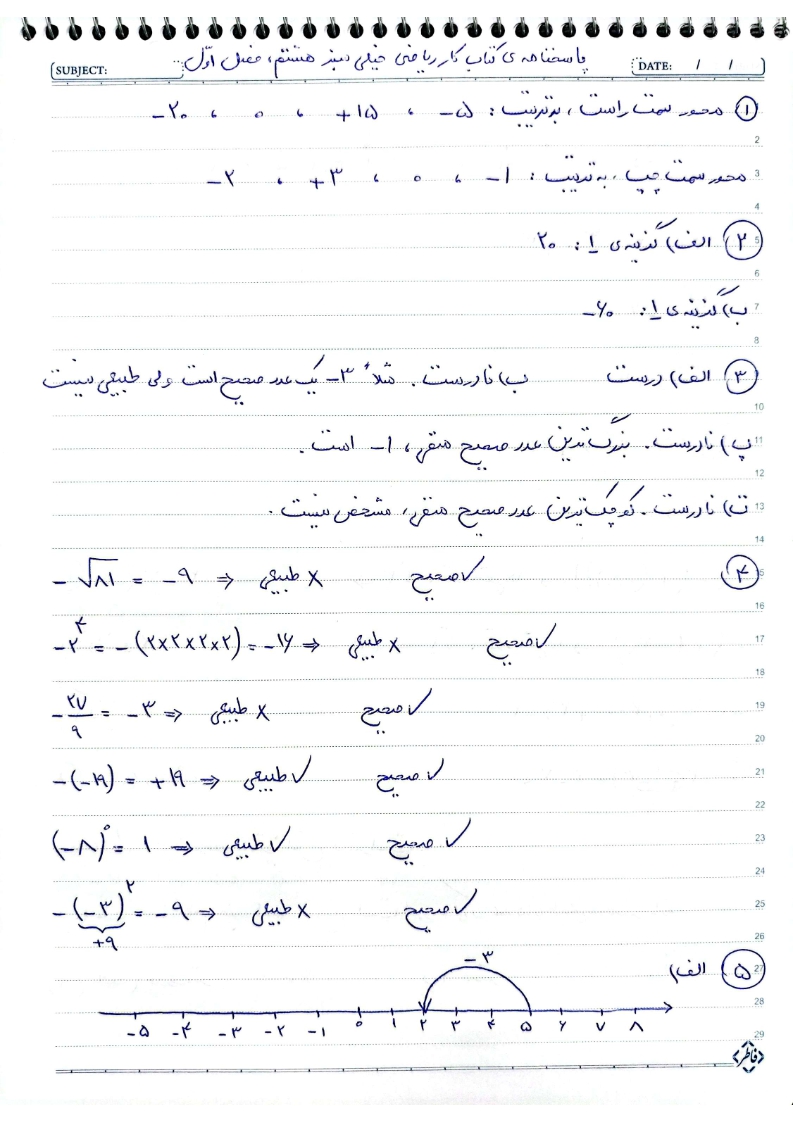 SUBJECT: پاسخنامه ی کتاب کار ریاضی خیلی سبز هشتم، فصل اوّل DATE: / /
① محور سمت راست، به ترتیب: -۵ ، +۱۵ ، ۰ ، -۲۰
2
محور سمت چپ، به ترتیب: -۱ ، ۰ ، +۳ ، -۲ 3
4
② الف) گزینه‌ی ۱: ۲۰ 5
6
ب) گزینه ی ۱: -۶۰ 7
8
③ الف) درست ب) نادرست. مثلاً -۳ یک عدد صحیح است ولی طبیعی نیست
10
پ) نادرست. بزرگ‌ترین عدد صحیح منفی، -۱ است. 11
12
ت) نادرست. کوچک‌ترین عدد صحیح منفی، مشخص نیست. 13
14
④ -√۸۱ = -۹ ⇒ طبیعی × صحیح ✓
16
-۲^۴ = -(۲×۲×۲×۲) = -۱۶ ⇒ طبیعی × صحیح ✓ 17
18
-۲۷/۹ = -۳ ⇒ طبیعی × صحیح ✓ 19
20
-(-۱۹) = +۱۹ ⇒ طبیعی ✓ صحیح ✓ 21
22
(-۸)^۰ = ۱ ⇒ طبیعی ✓ صحیح ✓ 23
24
-(-۳)^۲ = -۹ ⇒ طبیعی × صحیح ✓ 25
+۹ 26
⑤ الف) -۳ 27
28
-۵ -۴ -۳ -۲ -۱ ۰ ۱ ۲ ۳ ۴ ۵ ۶ ۷ ۸ 29
فاطر